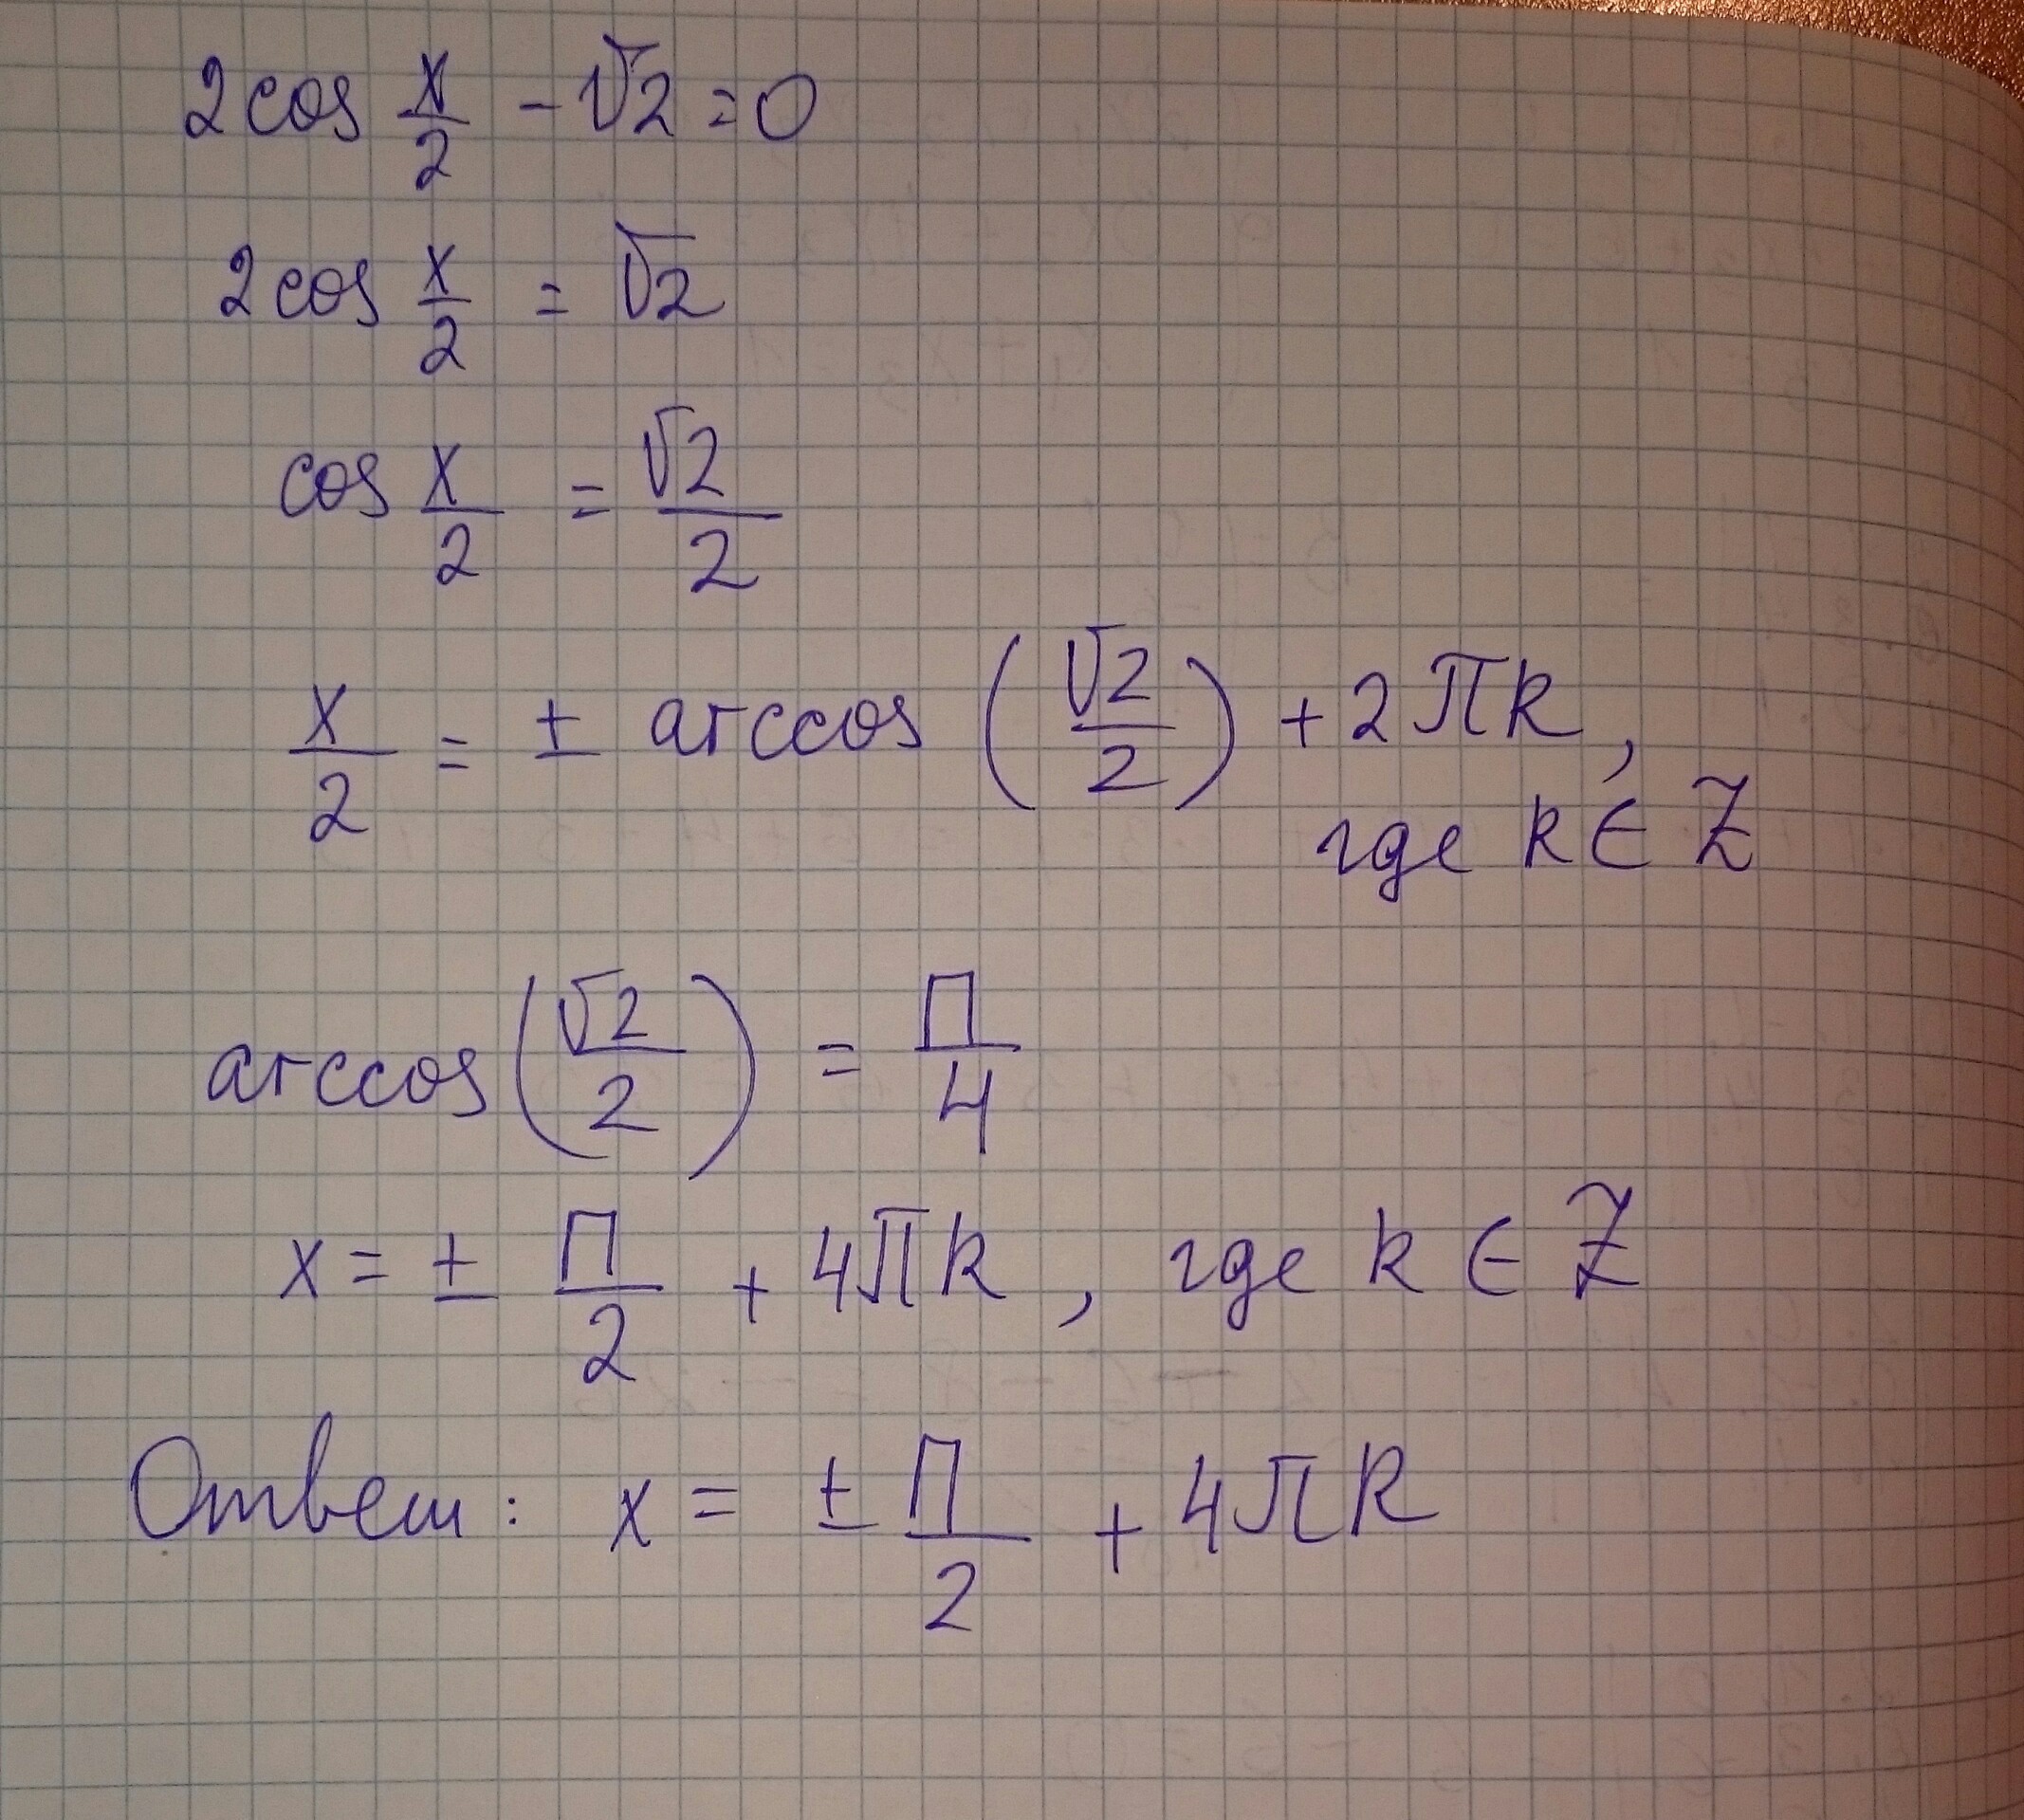 2cos x/2 - √2 = 0
2cos x/2 = √2
cos x/2 = √2/2
x/2 = ± arccos (√2/2) + 2πk,
где k ∈ Z
arccos (√2/2) = π/4
x = ± π/2 + 4πk, где k ∈ Z
Ответ: x = ± π/2 + 4πk